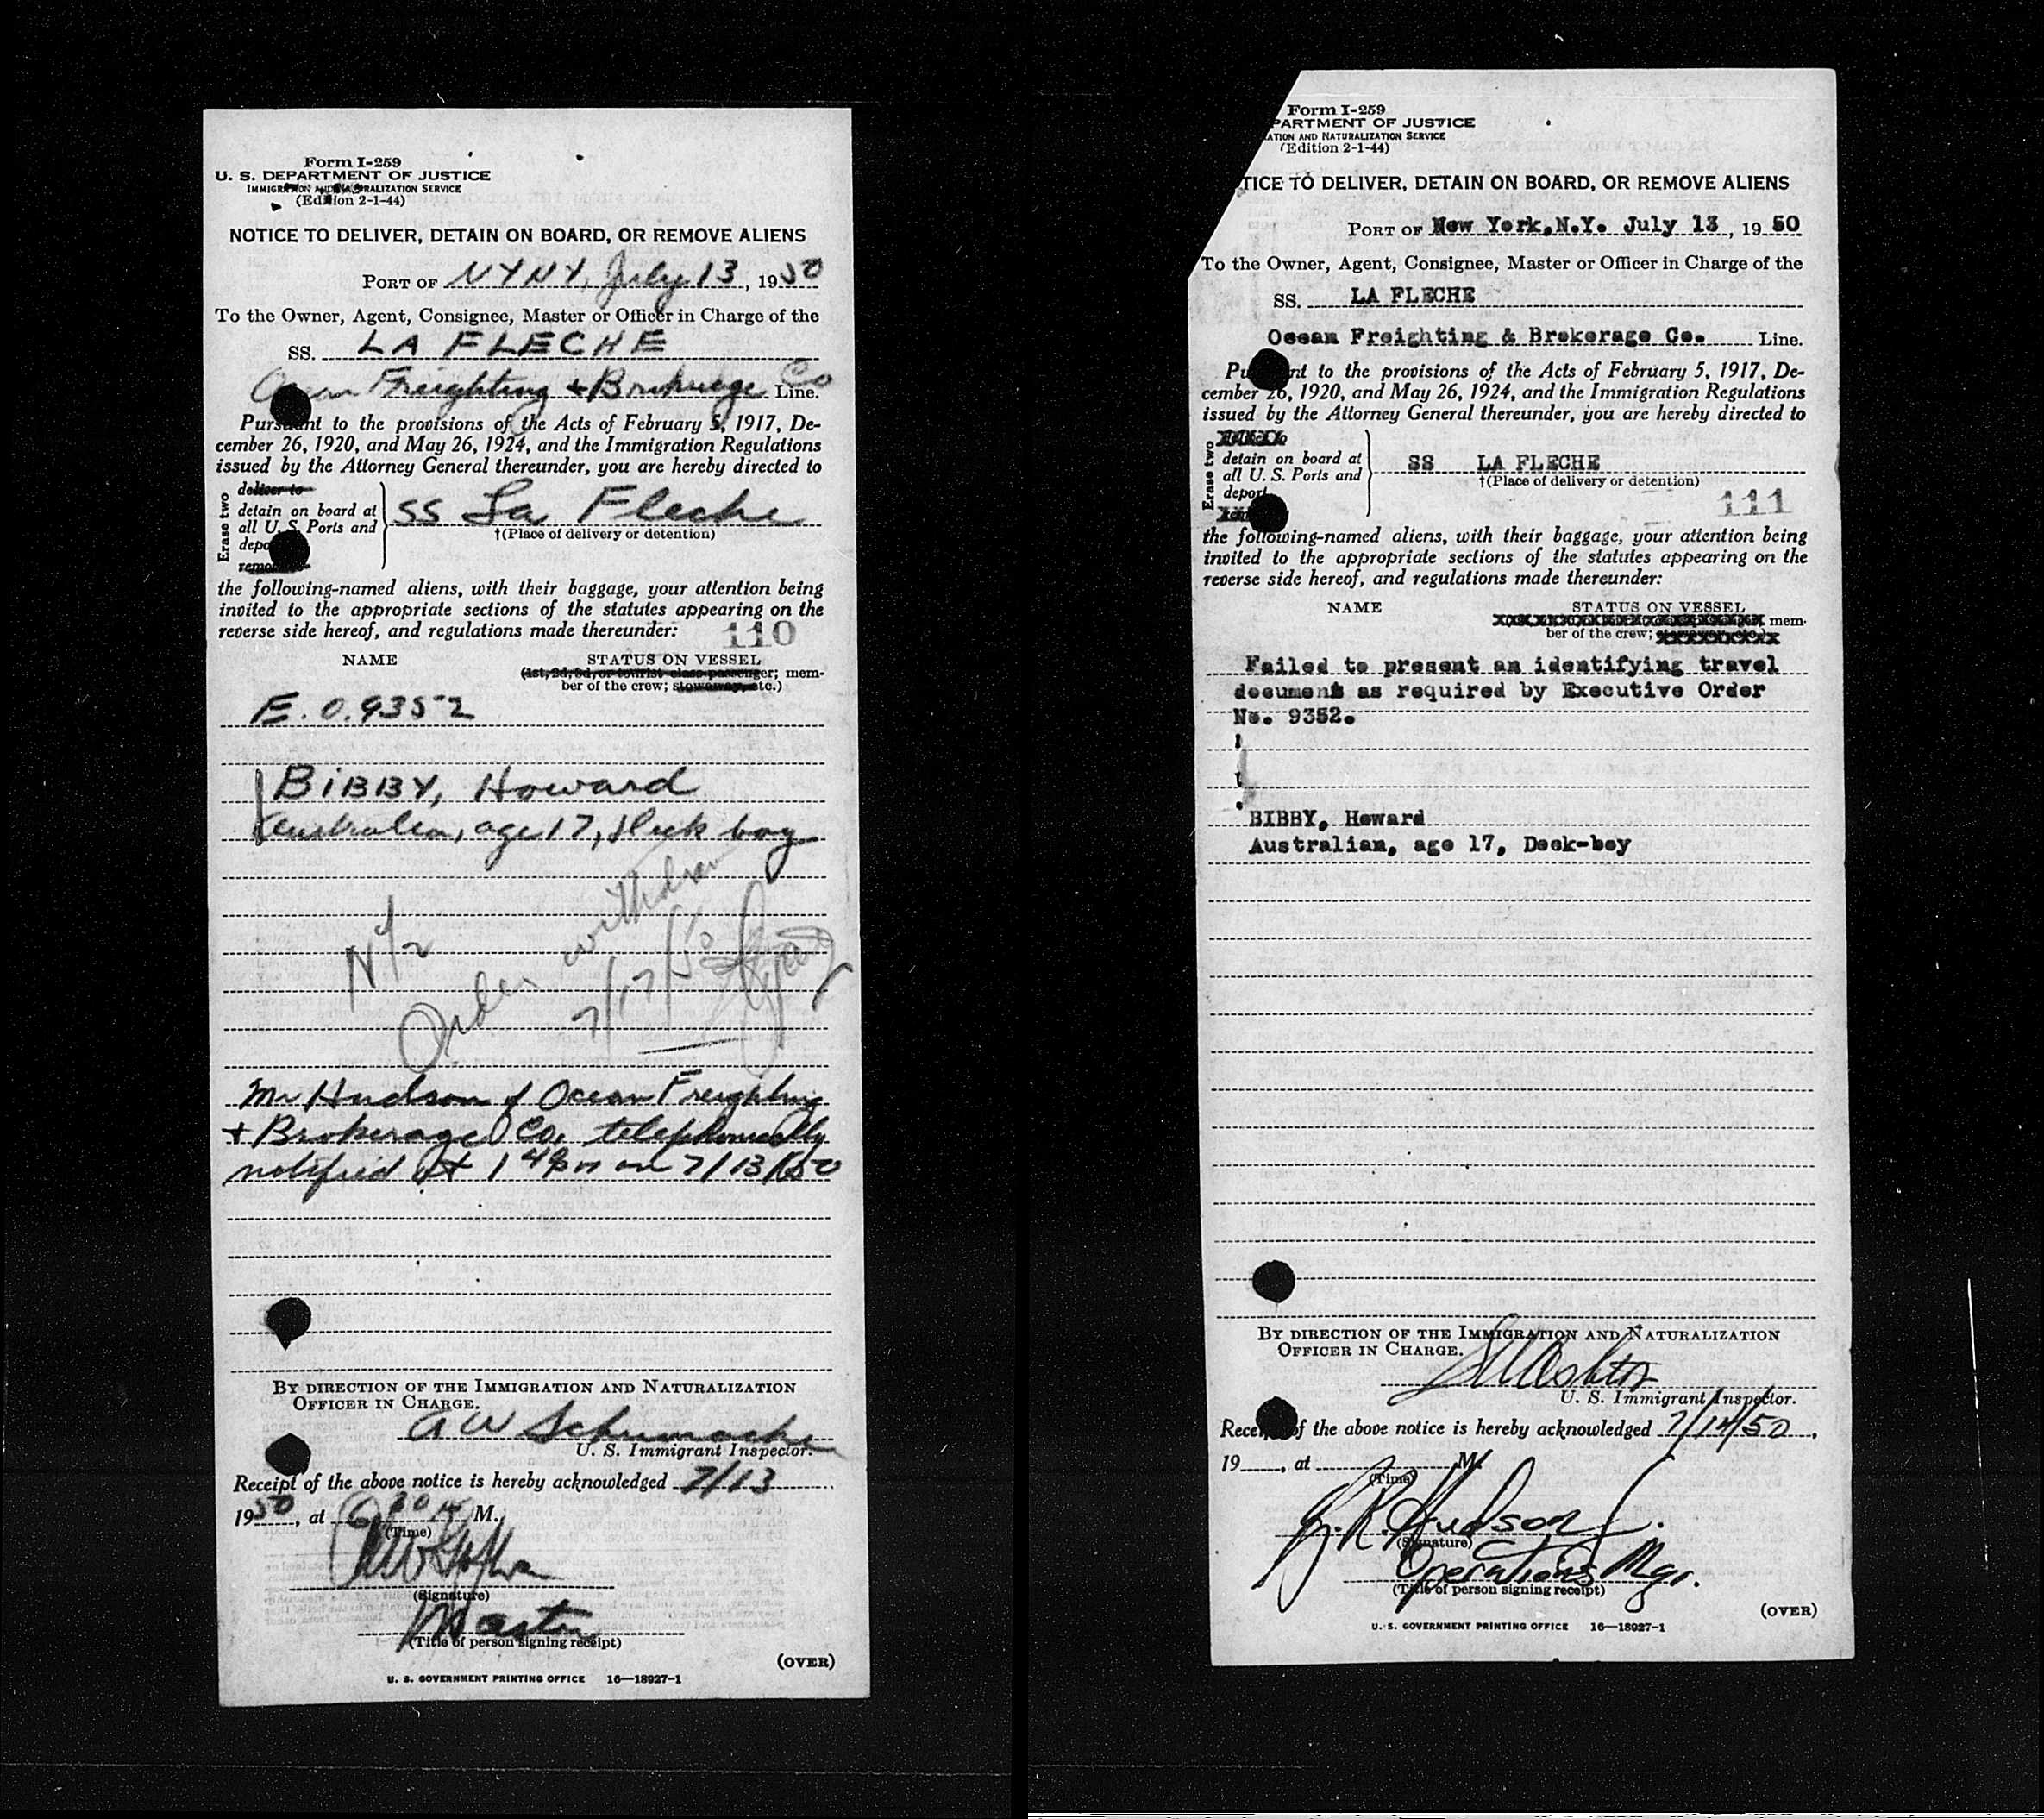 Form I-259
U. S. DEPARTMENT OF JUSTICE
IMMIGRATION AND NATURALIZATION SERVICE
(Edition 2-1-44)
NOTICE TO DELIVER, DETAIN ON BOARD, OR REMOVE ALIENS
PORT OF NYNY, July 13, 1950
To the Owner, Agent, Consignee, Master or Officer in Charge of the
SS. LA FLECHE
Ocean Freighting + Brokerage Co Line.
Pursuant to the provisions of the Acts of February 5, 1917, De-
cember 26, 1920, and May 26, 1924, and the Immigration Regulations
issued by the Attorney General thereunder, you are hereby directed to
Erase two
deliver to
detain on board at
all U. S. Ports and
depo
remo
SS La Fleche
†(Place of delivery or detention)
the following-named aliens, with their baggage, your attention being
invited to the appropriate sections of the statutes appearing on the
reverse side hereof, and regulations made thereunder: 110
NAME STATUS ON VESSEL
(1st, 2d, 3d, or tourist class passenger; mem-
ber of the crew; stowaway, etc.)
E.O.9352
BIBBY, Howard
Australian, age 17, deck boy
Order withdrawn
7/17/50
Mr Hudson of Ocean Freighting
+ Brokerage Co. telephonically
notified at 1 on 7/13/50
BY DIRECTION OF THE IMMIGRATION AND NATURALIZATION
OFFICER IN CHARGE.
A W Schumacher
U. S. Immigrant Inspector.
Receipt of the above notice is hereby acknowledged 7/13
1950, at 6 30 M.
(Time)
(Signature)
Master
(Title of person signing receipt)
(OVER)
U. S. GOVERNMENT PRINTING OFFICE 16—18927-1
Form I-259
PARTMENT OF JUSTICE
ATION AND NATURALIZATION SERVICE
(Edition 2-1-44)
TICE TO DELIVER, DETAIN ON BOARD, OR REMOVE ALIENS
PORT OF New York,N.Y. July 13, 1950
To the Owner, Agent, Consignee, Master or Officer in Charge of the
SS. LA FLECHE
Ocean Freighting & Brokerage Co. Line.
Pu nt to the provisions of the Acts of February 5, 1917, De-
cember 26, 1920, and May 26, 1924, and the Immigration Regulations
issued by the Attorney General thereunder, you are hereby directed to
Erase two
detain on board at
all U. S. Ports and
deport
SS LA FLECHE
†(Place of delivery or detention)
111
the following-named aliens, with their baggage, your attention being
invited to the appropriate sections of the statutes appearing on the
reverse side hereof, and regulations made thereunder:
NAME STATUS ON VESSEL
mem-
ber of the crew;
Failed to present an identifying travel
document as required by Executive Order
No. 9352.
BIBBY, Howard
Australian, age 17, Deck-boy
BY DIRECTION OF THE IMMIGRATION AND NATURALIZATION
OFFICER IN CHARGE.
U. S. Immigrant Inspector.
Recei of the above notice is hereby acknowledged 7/14/50,
19 , at M.
(Time)
R. Hudson
(Signature)
Operations Mgr.
(Title of person signing receipt)
(OVER)
U. S. GOVERNMENT PRINTING OFFICE 16—18927-1